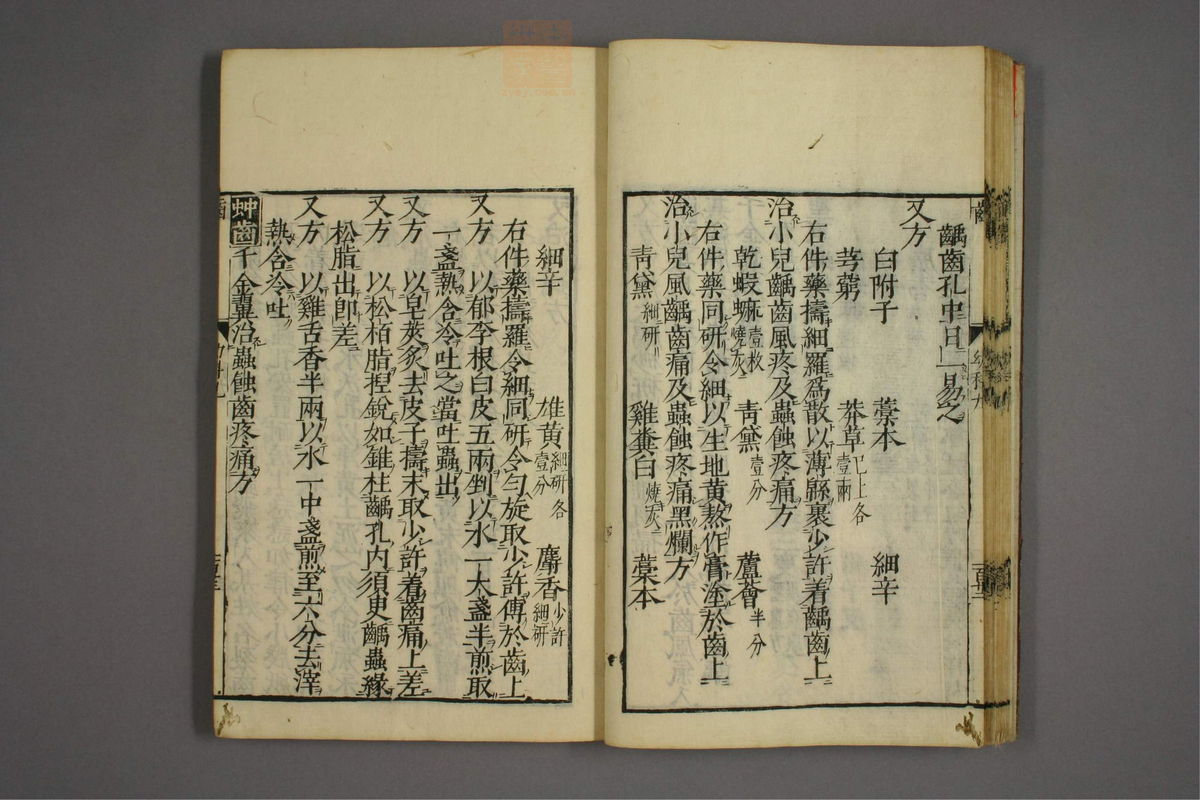 齲齒孔中日二易之
又方
白附子 藁本 細辛
芎藭 莽草已上各壹兩
右件藥擣細羅爲散以薄緜裹少許着齲齒上
治小兒齲齒風疼及蟲蝕疼痛方
乾蝦蟆燒灰壹枚 靑黛壹分 蘆薈半分
右件藥同研令細以生地黃熬作膏塗於齒上
治小兒風齲齒痛及蟲蝕疼痛黑爛方
靑黛細研 雞糞白燒灰 藁本
細辛 雄黃細研各壹分 麝香少許細研
右件藥擣羅令細同研令勻旋取少許傅於齒上
又方 以郁李根白皮五兩剉以水一大盞半煎取
一盞熱含冷吐之當吐蟲出
又方 以皂莢炙去皮子擣末取少許着齒痛上差
又方 以松柏脂揑銳如錐柱齲孔內須臾齲蟲緣
松脂出卽差
又方 以雞舌香半兩以水一中盞煎至六分去滓
熱含冷吐
䖝齒千金翼治蟲蝕齒疼痛方